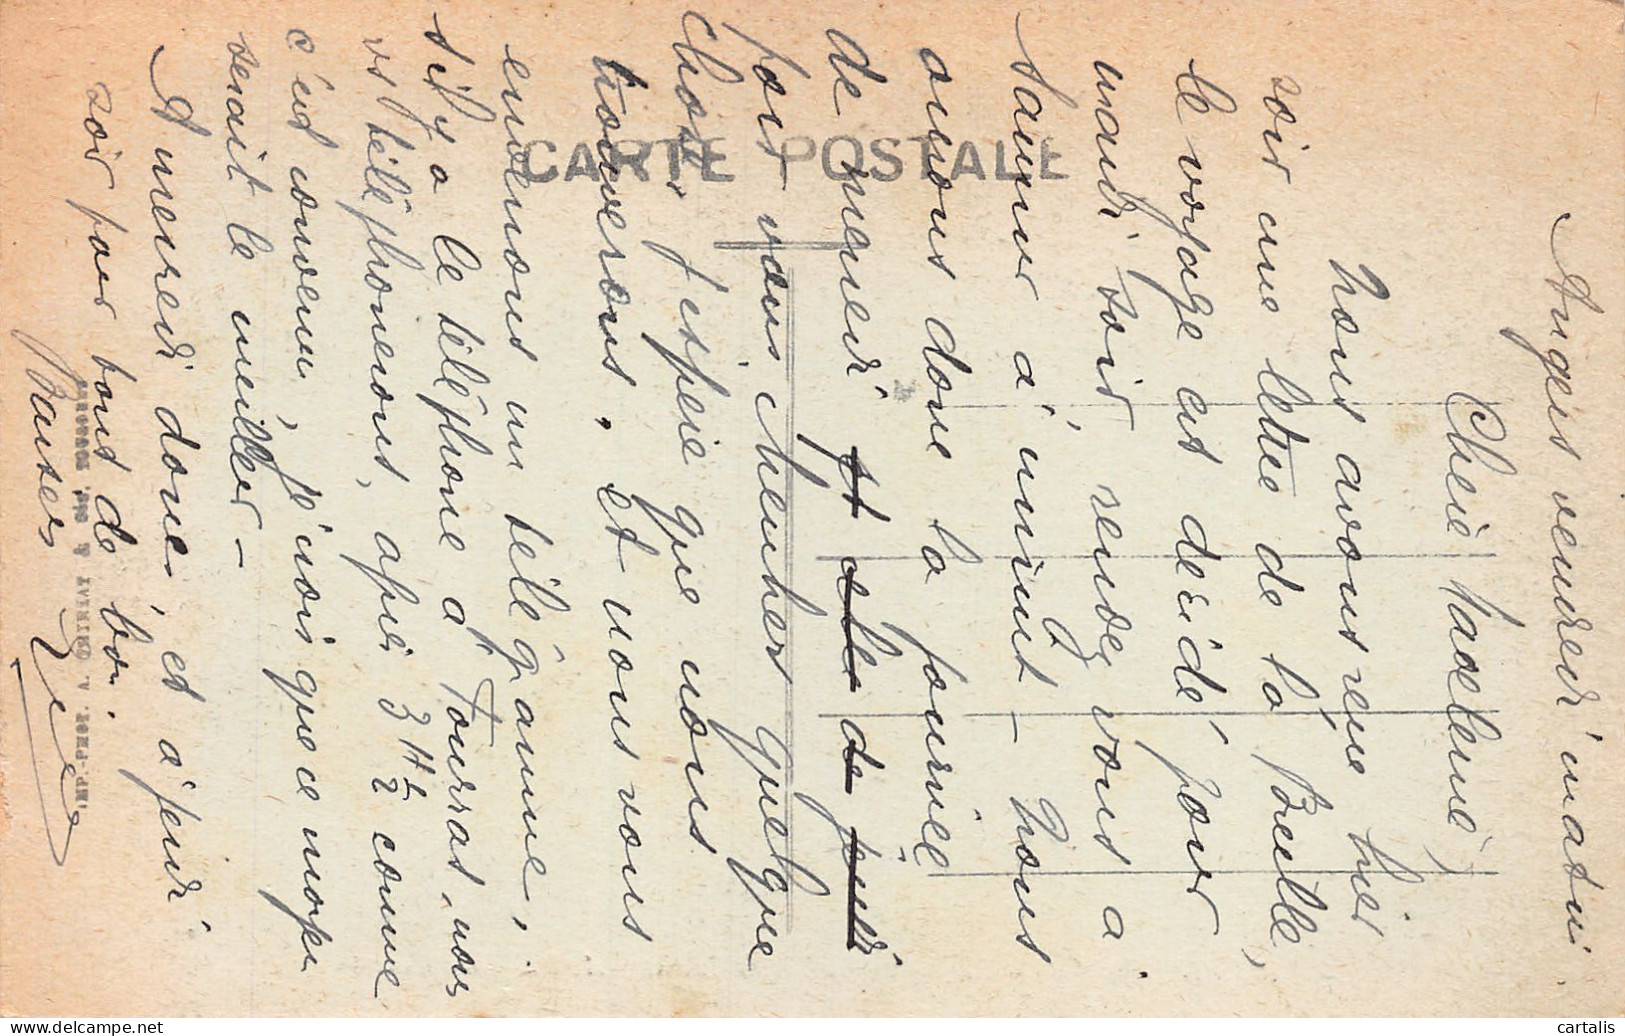 Angers vendredi matin
Cherie Madeleine,
Nous avons reçu hier
soir une lettre de la Baulle,
le voyage est décidé pour
mardi soir, rendez vous à
Saumur à minuit - Nous
avons donc la journée
de mercredi
pour vous chercher quelque
chose j'espère que nous
trouverons, et nous vous
enverrons un télégramme,
s'il y a le téléphone à Tourras, nous
vs téléphonerons, après 3 H ½ comme
c'est convenu, je crois que ce moyen
serait le meilleur -
A mercredi donc, et à jeudi
soir pour tout de bon.
Baisers
CARTE POSTALE